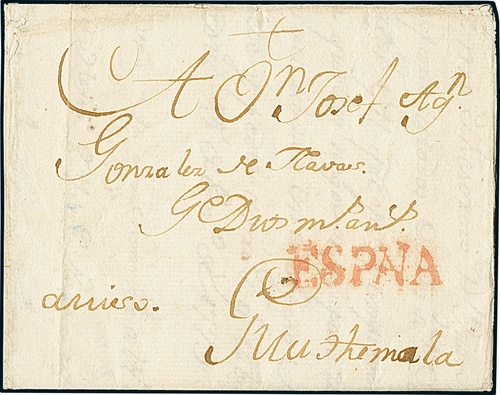 A Dn Josef Agn
Gonzalez de
Ge Dios ms. as.
ESPNA
aviso.
Guathemala